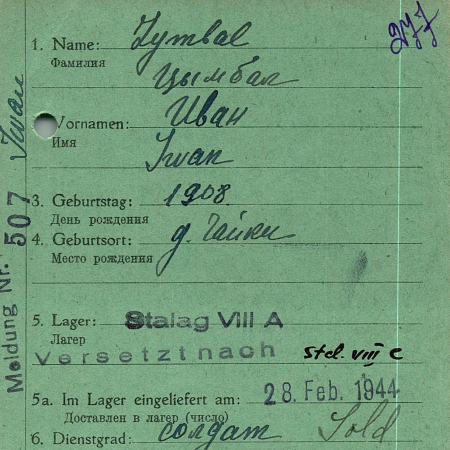 277
1. Name: Zymbal
Фамилия Цымбал
Vornamen: Иван
Имя Iwan
3. Geburtstag: 1908.
День рождения
4. Geburtsort: д. Чайки
Место рождения
5. Lager: Stalag VIII A
Лагер
Versetzt nach Stal. VIII C
5a. Im Lager eingeliefert am: 28. Feb. 1944
Доставлен в лагер (число)
6. Dienstgrad: солдат Sold
Meldung Nr. 507 Iwan